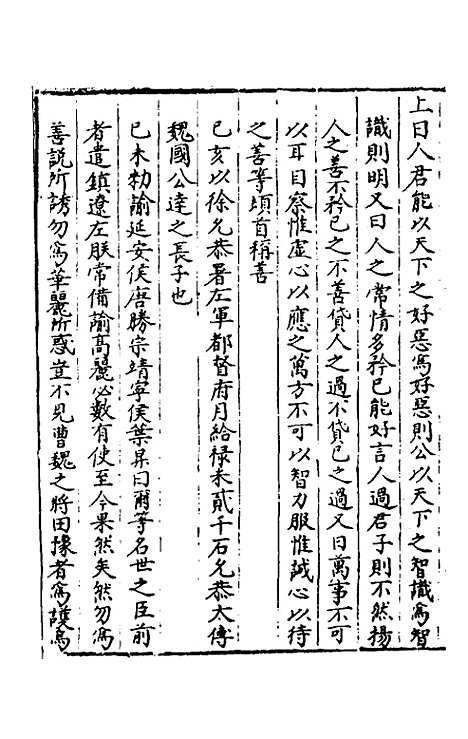 上曰人君能以天下之好惡爲好惡則公以天下之智識爲智
識則明又曰人之常情多矜已能好言人過君子則不然揚
人之善不矜已之不善貸人之過不貸已之過又曰萬事不可
以耳目察惟虛心以應之萬方不可以智力服惟誠心以待
之善等頃首稱善
已亥以徐允恭署左軍都督府月給祿米貳千石允恭太傅
魏國公達之長子也
已未勑諭延安侯唐勝宗靖寧侯葉昇曰爾等名世之臣前
者遣鎮遼左朕常備諭髙麗必數有使至今果然矣然勿爲
善説所誘勿爲華麗所惑豈不見曹魏之將田豫者爲護烏